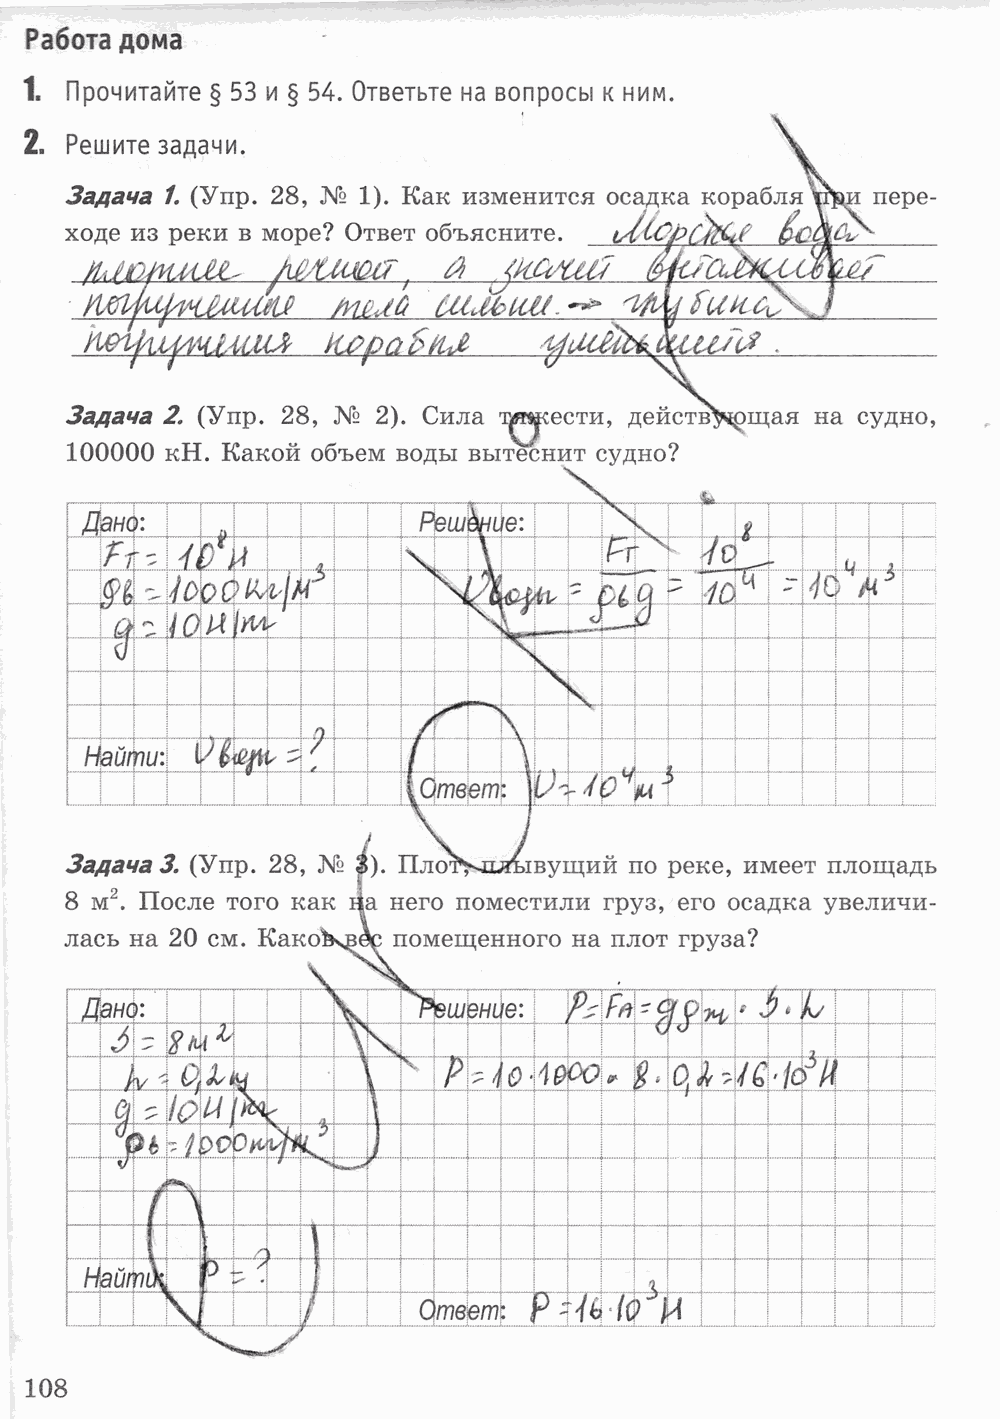 Работа дома
1. Прочитайте § 53 и § 54. Ответьте на вопросы к ним.
2. Решите задачи.
Задача 1. (Упр. 28, № 1). Как изменится осадка корабля при пере-
ходе из реки в море? Ответ объясните. Морская вода
плотнее речной, а значит выталкивает
погруженные тела сильнее. → глубина
погружения корабля уменьшается.
Задача 2. (Упр. 28, № 2). Сила тяжести, действующая на судно,
100000 кН. Какой объем воды вытеснит судно?
Дано: Решение:
Fт = 10⁸ Н
ρв = 1000 кг/м³
g = 10 Н/кг
Vводы = Fт / ρвg = 10⁸ / 10⁴ = 10⁴ м³
Найти: Vводы = ?
Ответ: V = 10⁴ м³
Задача 3. (Упр. 28, № 3). Плот, плывущий по реке, имеет площадь
8 м². После того как на него поместили груз, его осадка увеличи-
лась на 20 см. Каков вес помещенного на плот груза?
Дано: Решение: P = FA = gρж · S · h
S = 8 м²
h = 0,2 м P = 10 · 1000 · 8 · 0,2 = 16 · 10³ Н
g = 10 Н/кг
ρв = 1000 кг/м³
Найти: P = ?
Ответ: P = 16 · 10³ Н
108